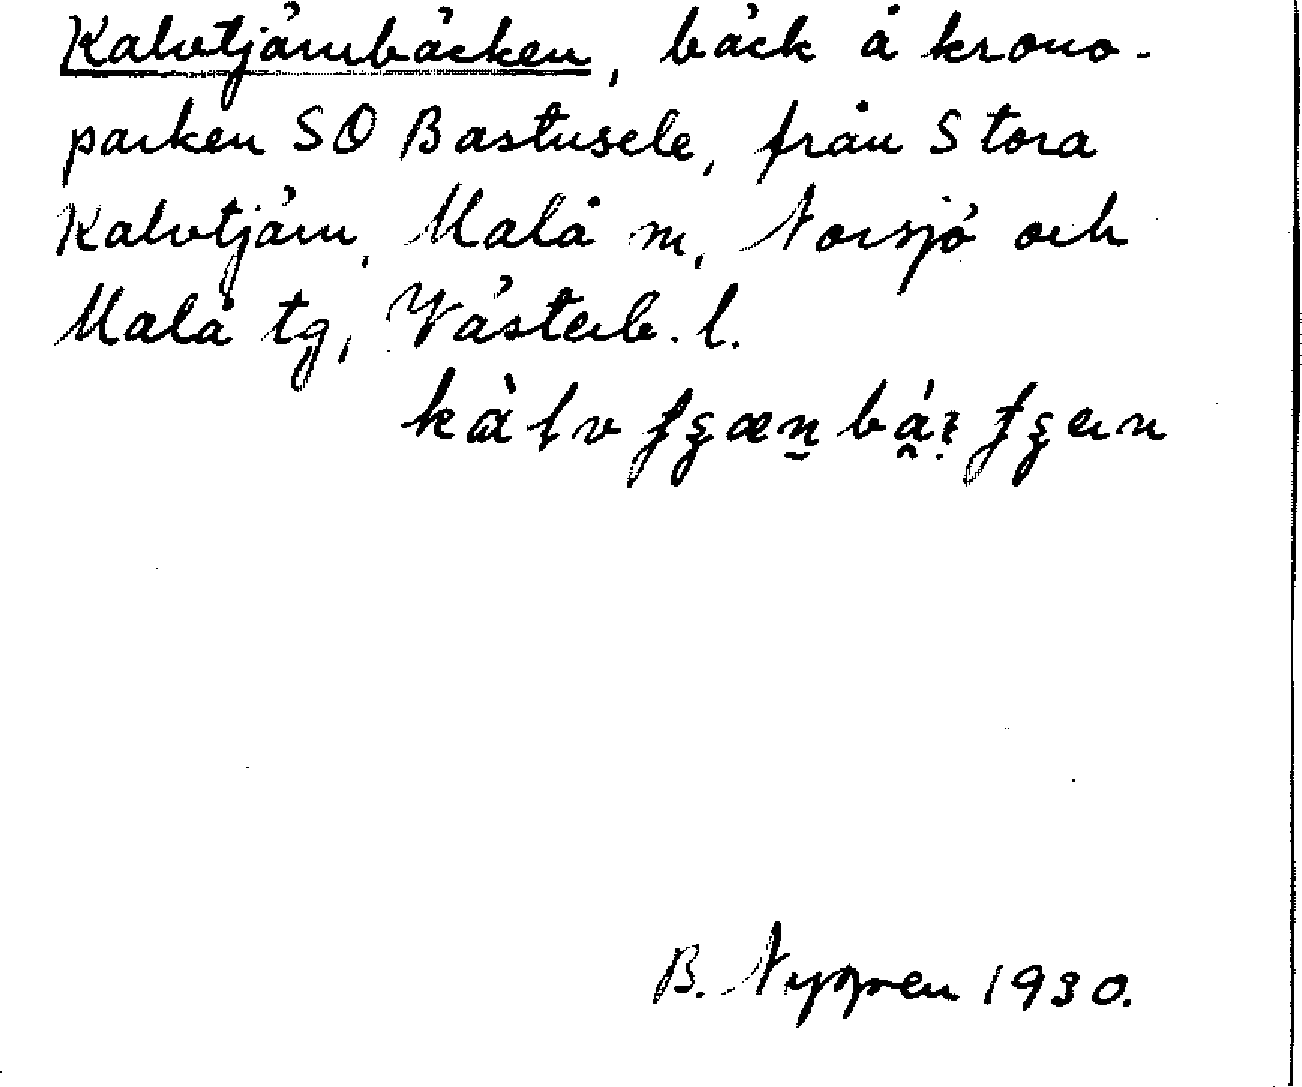 Kalvtjärnbäcken, bäck å krono-
parken SO Bastusele, från Stora
Kalvtjärn, Malå sn, Norsjö och
Malå tg, Västerb. l.
B. Nygren 1930.